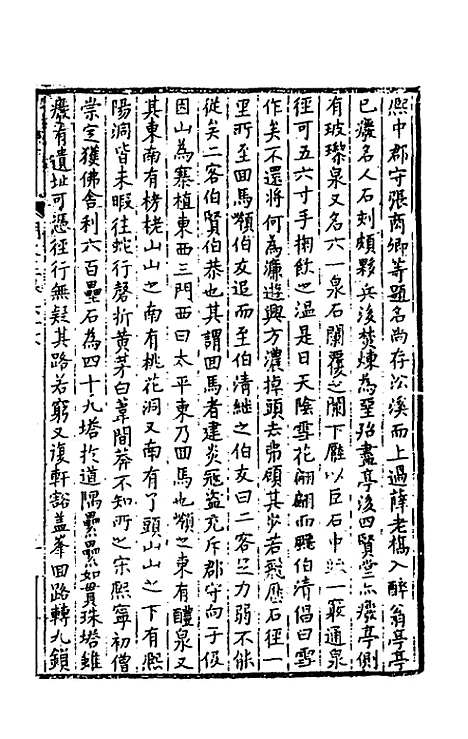 熙中郡守張商卿等題名尚存沿溪而上過薛老橋入醉翁亭亭
已廢名人石刻頗夥兵後焚煉為堊殆盡亭後四賢堂亦廢亭側
有玻瓈泉又名六一泉石闌覆之闌下甃以巨石中一竅通泉
徑可五六寸手掬飲之温是日天陰雪花翩翩而飛伯清倡曰雪
作矣不還將何為濂遊興方濃掉頭去弗顧其步若飛歷石徑一
里所至回馬嶺伯友追而至伯清繼之伯友曰二客足力弱不能
從矣二客伯賢伯恭也其謂回馬者建炎寇盗充斥郡守向子伋
因山為寨植東西三門西曰太平東乃回馬也嶺之東有醴泉又
其東南有栲栳山山之南有桃花洞又南有了頭山山之下有熙
陽洞皆未暇往蛇行磬折黄茅白葦間莽不知所之宋熙寧初僧
崇定獲佛舎利六百壘石為四十九塔扵道隅纍纍如貫珠塔雖
廢有遺址可憑徑行無疑其路若窮又復軒豁盖峯回路轉九鎖